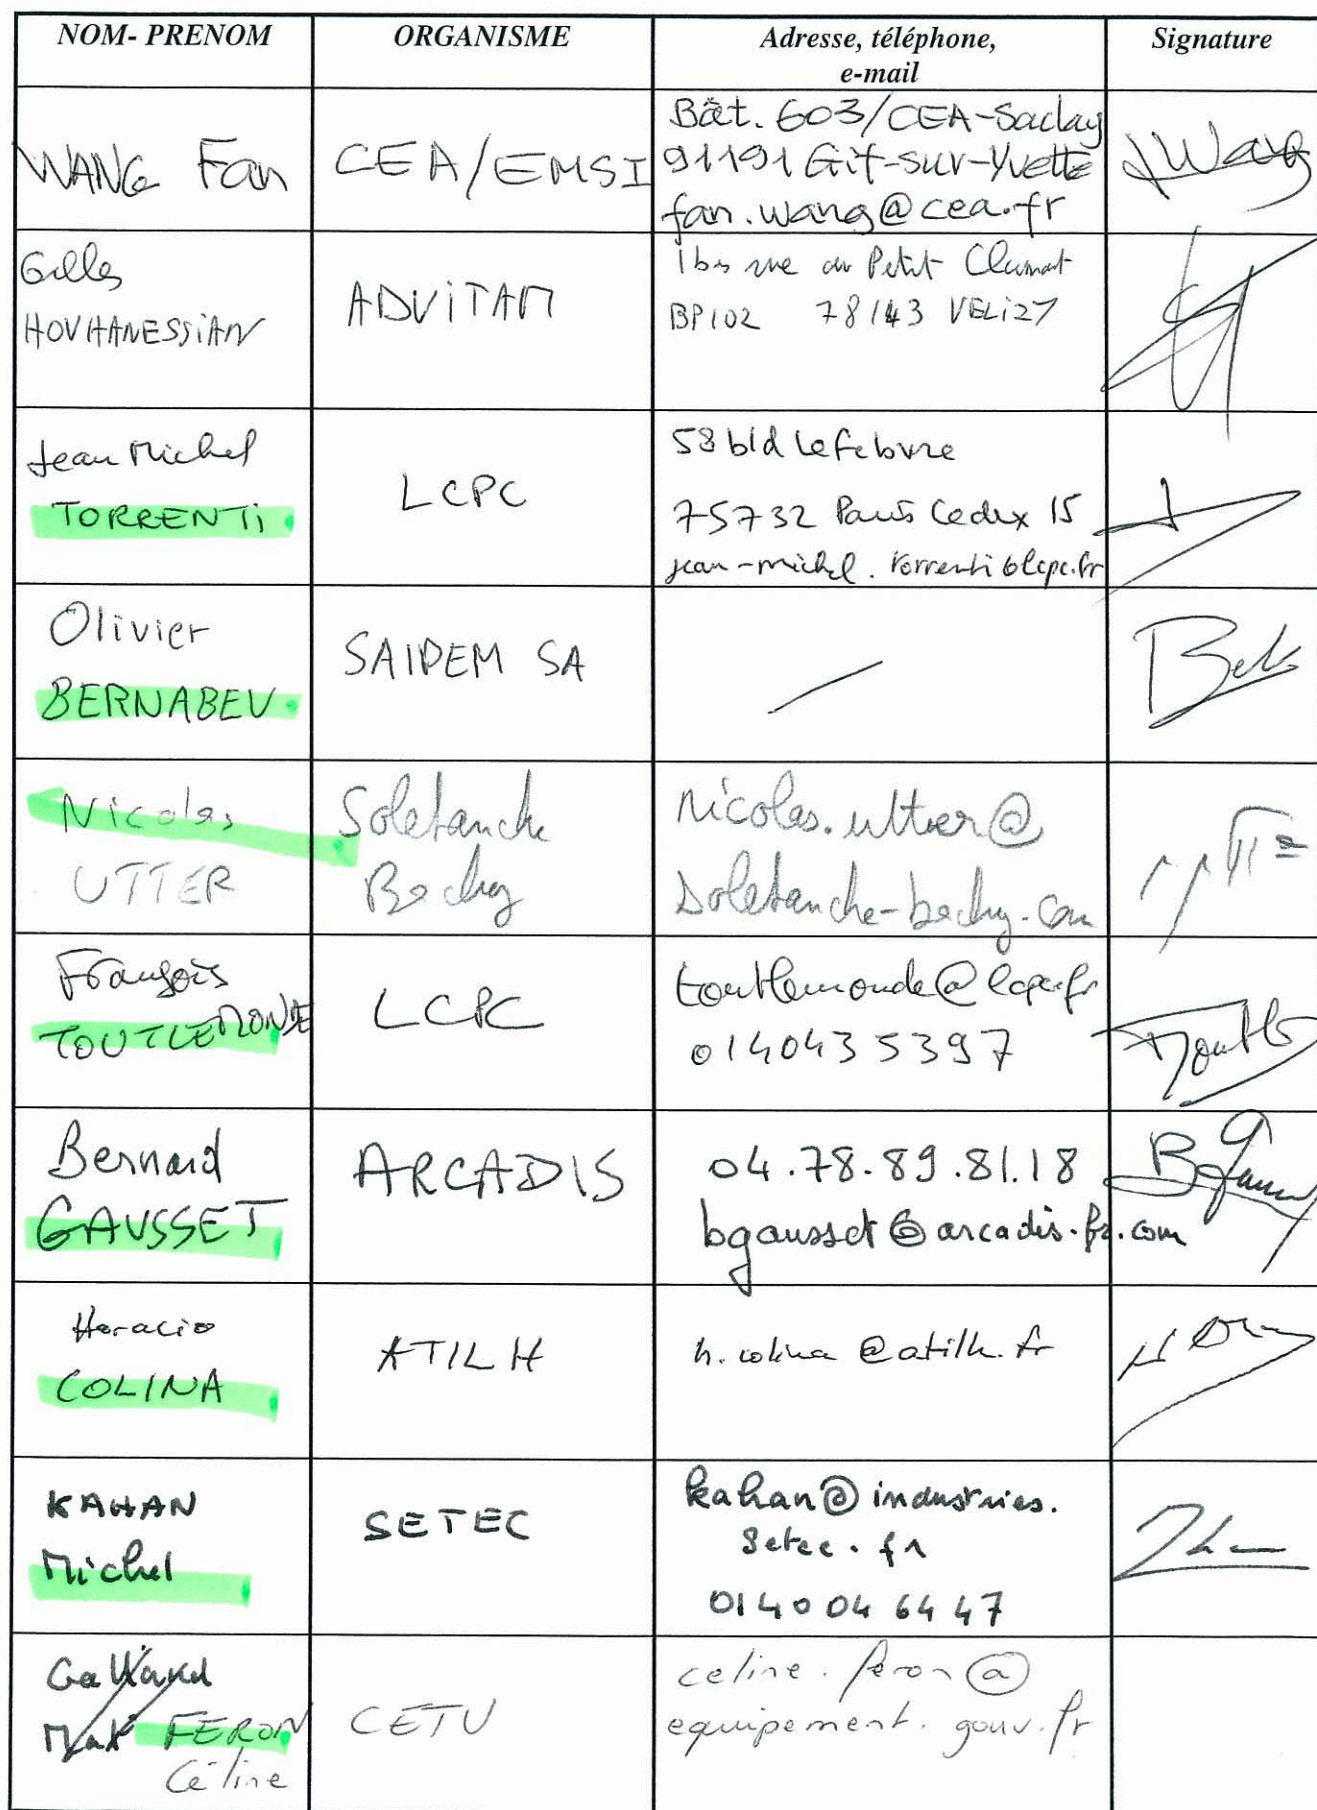 NOM- PRENOM
ORGANISME
Adresse, téléphone,
e-mail
Signature
WANG Fan
CEA/EMSI
Bât. 603/CEA-Saclay
91191 Gif-sur-Yvette
fan.wang@cea.fr
Wang
Gilles
HOVHANESSIAN
ADViTAM
1bis rue du Petit Clamart
BP102 78143 VELIZY
Jean Michel
TORRENTi
LCPC
58 bld Lefebvre
75732 Paris Cedex 15
jean-michel.torrenti@lcpc.fr
Olivier
BERNABEU
SAIPEM SA
Nicolas
UTTER
Soletanche
Bachy
nicolas.utter@
soletanche-bachy.com
François
TOUTLEMONDE
LCPC
toutlemonde@lcpc.fr
0140435397
Bernard
GAUSSET
ARCADIS
04.78.89.81.18
bgausset@arcadis-fr.com
Horacio
COLINA
ATILH
h.colina@atilh.fr
KAHAN
Michel
SETEC
kahan@industries.
setec.fr
01 40 04 64 47
Galland
Mat FERON
Céline
CETU
celine.feron@
equipement.gouv.fr